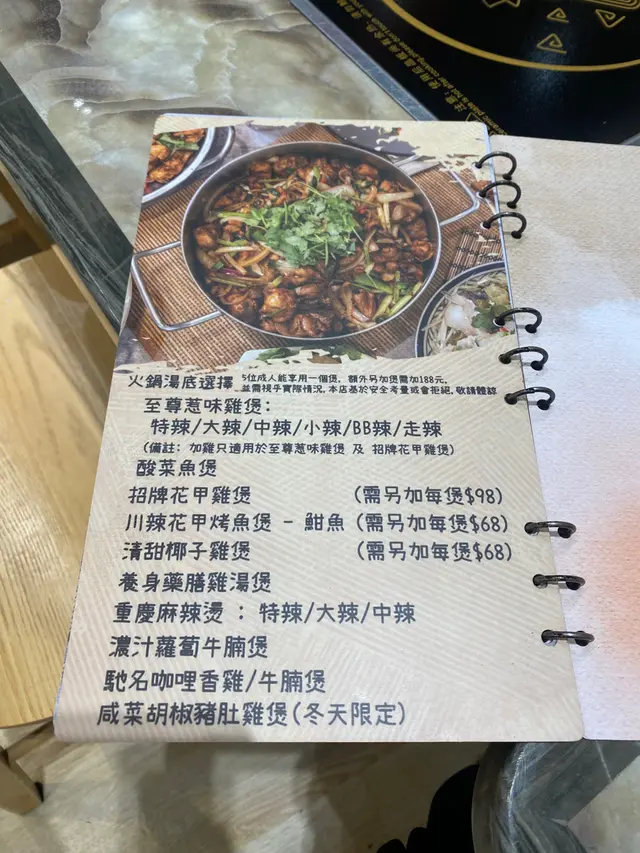 火鍋湯底選擇 5位成人能享用一個煲, 額外另加煲需加188元,
並需視乎實際情況, 本店基於安全考量或會拒絕, 敬請體諒
至尊惹味雞煲:
特辣/大辣/中辣/小辣/BB辣/走辣
(備註: 加雞只適用於至尊惹味雞煲 及 招牌花甲雞煲)
酸菜魚煲
招牌花甲雞煲 (需另加每煲$98)
川辣花甲烤魚煲 - 鮒魚 (需另加每煲$68)
清甜椰子雞煲 (需另加每煲$68)
養身藥膳雞湯煲
重慶麻辣燙 : 特辣/大辣/中辣
濃汁蘿蔔牛腩煲
馳名咖哩香雞/牛腩煲
咸菜胡椒豬肚雞煲(冬天限定)